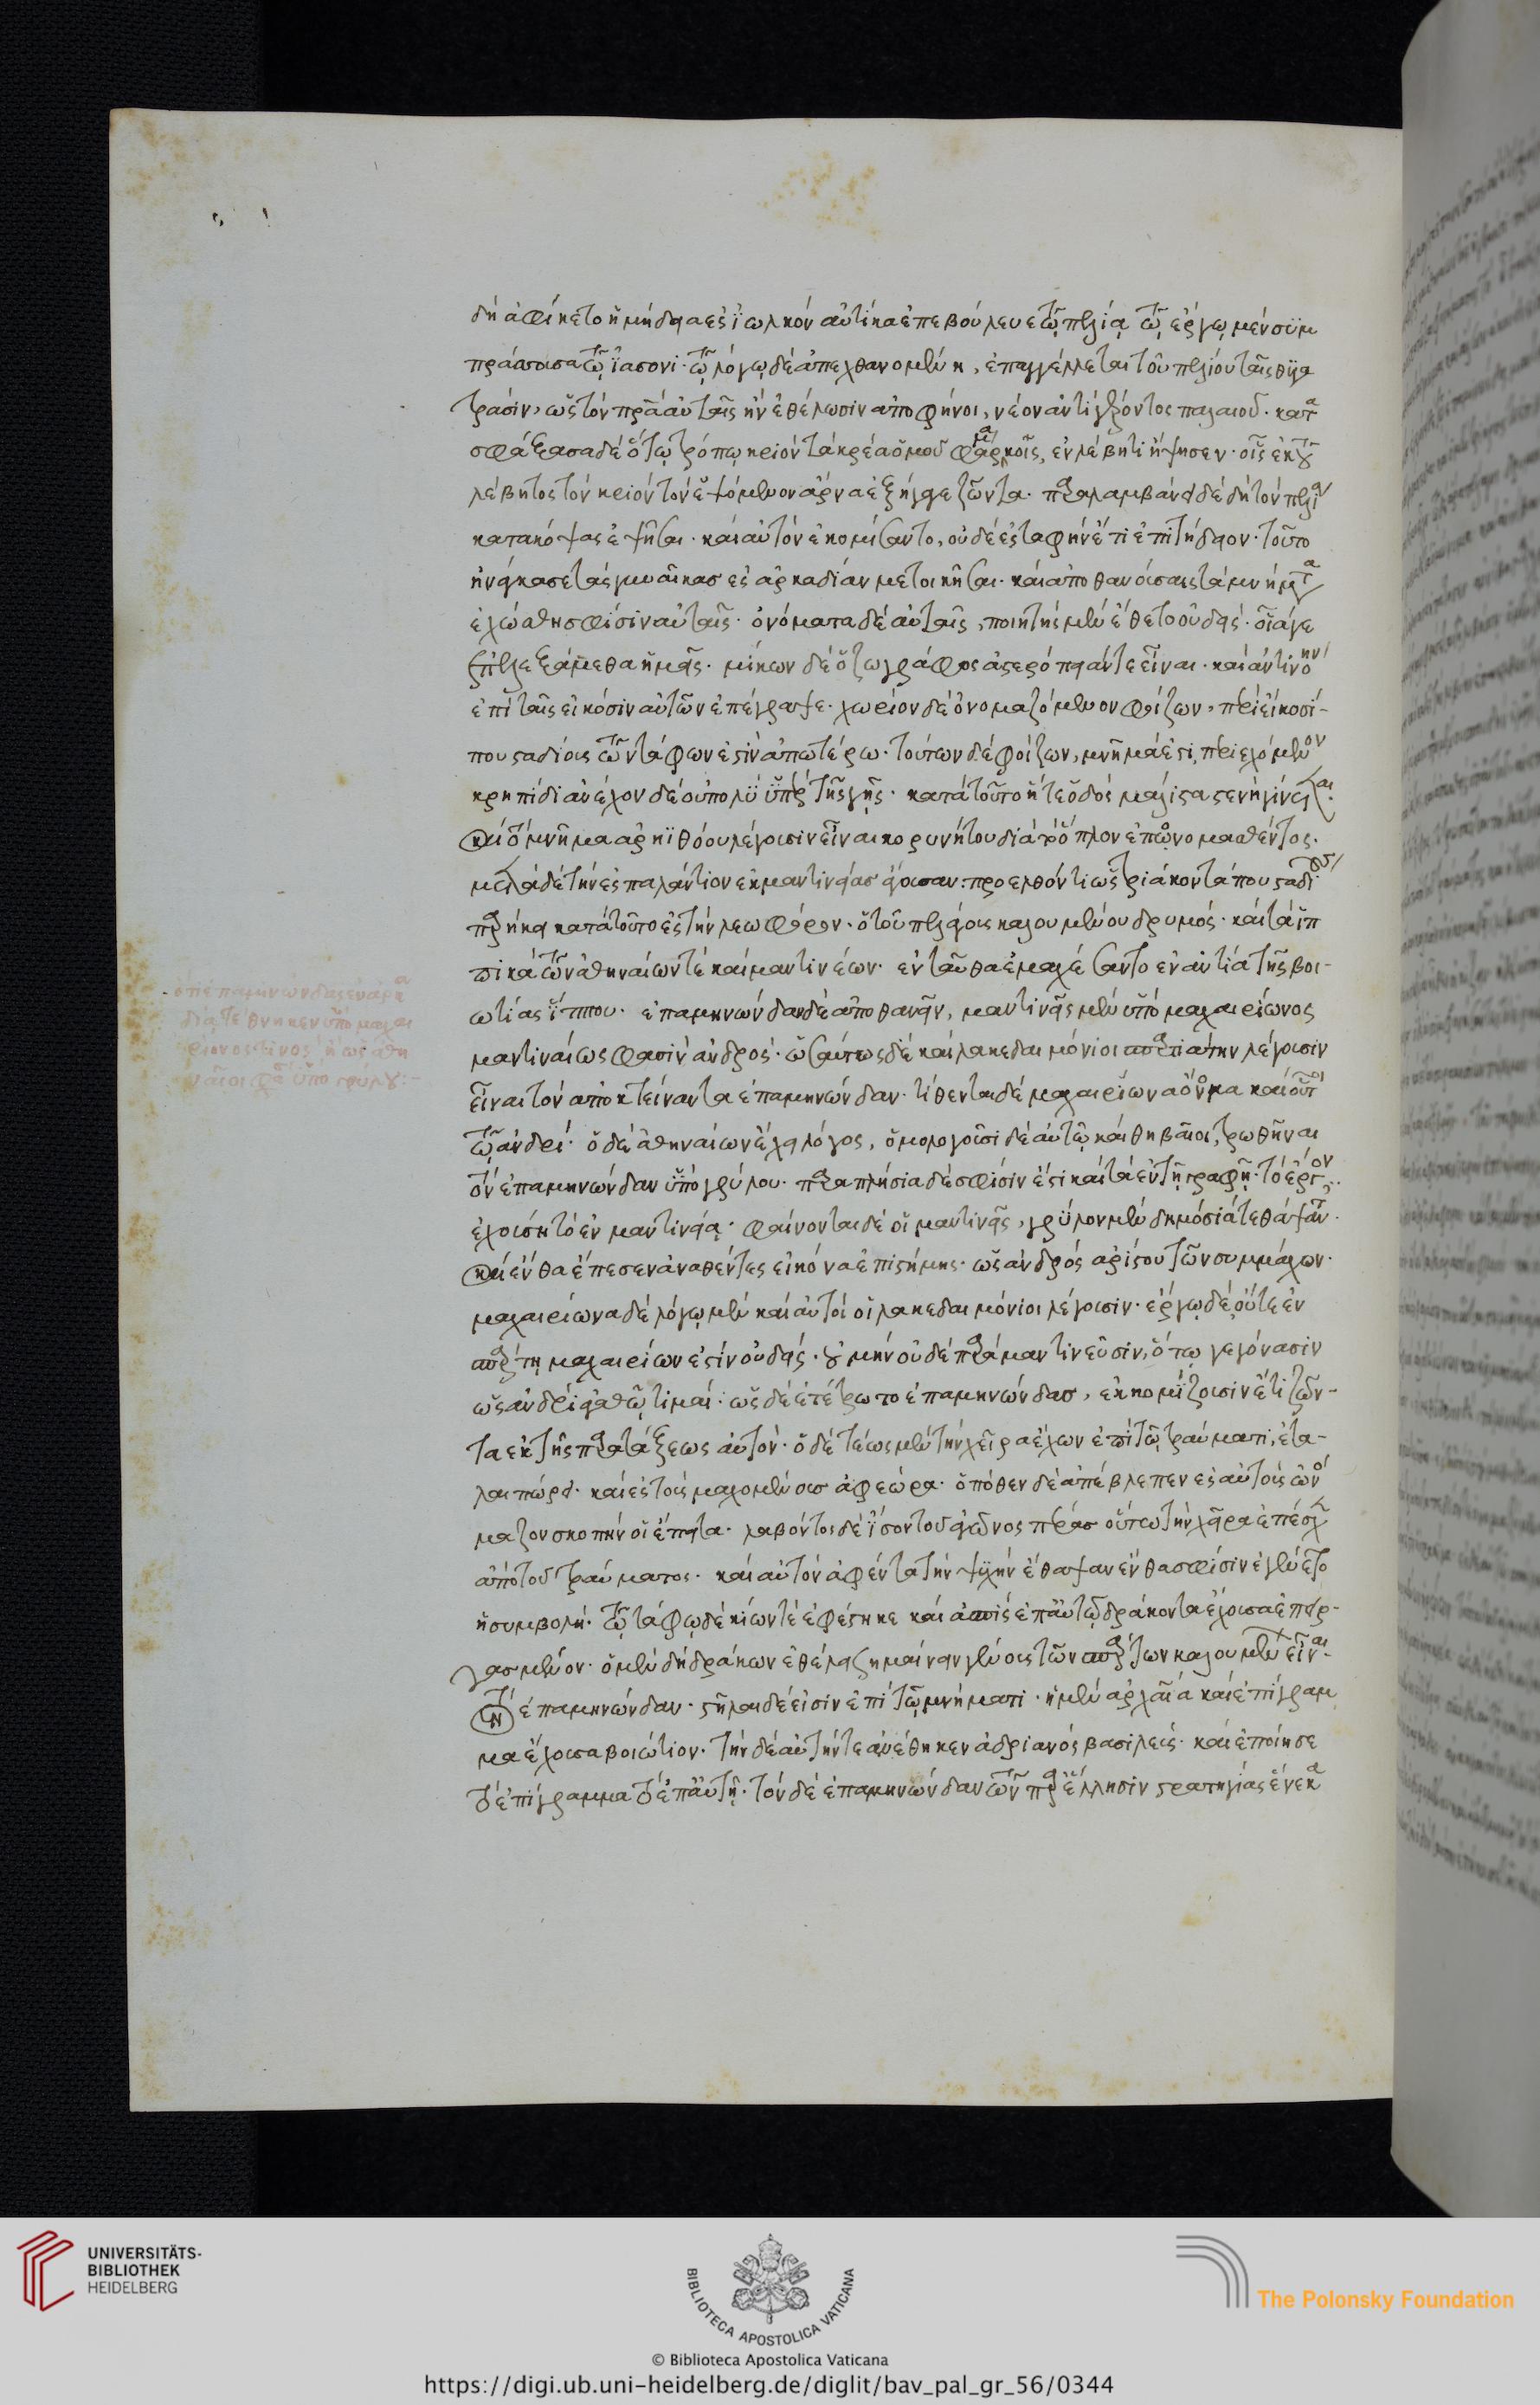 δὴ ἀφίκετο ἡ μήδεια ἐς ἰωλκόν αὐτίκα ἐπεβούλευε τῷ πελίᾳ τῷ ἔργῳ μέν συμ
πράσσουσα τῷ ἰάσονι· τῷ λόγῳ δὲ ἀπεχθανομένη, ἐπαγγέλλεται τοῦ πελίου ταῖς θυγα
τράσιν, ὡς τὸν πρα αὐταῖς ἢν ἐθέλωσιν ἀποφήνοι, νέον ἀντὶ γέροντος παλαιοῦ· κατα
σφάξασα δὲ ὅτῳ τρόπῳ κριὸν τὰ κρέα ὁμοῦ φαρμάκοις, ἐν λέβητι ἥψησεν· οἷς ἐκ τοῦ
λέβητος τὸν κριὸν τὸν ἑψόμενον ἄρνα ἐξήγαγε ζῶντα· παραλαμβάνει δὲ δὴ τὸν πελίαν
κατακόψασ ἑψῆσαι· καὶ αὐτὸν ἐκομίσαντο, οὐδὲ ἐς ταφὴν ἔτι ἐπιτήδειον· τοῦτο
ἠνάγκασε τὰς γυναῖκασ ἐς ἀρκαδίαν μετοικῆσαι· καὶ ἀποθανούσαις τὰ μνήματα
ἐχώσθη σφίσιν αὐταῖς· ὀνόματα δὲ αὐταῖς, ποιητὴς μὲν ἔθετο οὐδείς· ὅσα γε
ἐπελεξάμεθα ἡμεῖς· μίκων δὲ ὁ ζωγράφος ἀστερόπειάν τε εἶναι· καὶ ἀντινόην
ἐπὶ ταῖς εἰκόσιν αὐτῶν ἐπέγραψε· χωρίον δὲ ὀνομαζόμενον φοίζων, περὶ εἴκοσί-
που σταδίους τῶν τάφων ἐστὶν ἀπωτέρω· τούτων δὲ φοίζων, μνῆμά ἐστι, περιεχόμενον
κρηπῖδι ἀνέχον δὲ οὐ πολὺ ὑπὲρ τῆς γῆς· κατὰ τοῦτο ἥ τε ὁδός μάλιστα στενὴ γίνεται·
καὶ τὸ μνῆμα ἀρηϊθόου λέγουσιν εἶναι κορυνήτου διὰ τὸ ὅπλον ἐπονομασθέντος.
μετὰ δὲ τὴν ἐς παλάντιον ἐκ μαντινείασ ἄγουσαν: προελθόντι ὡς τριάκοντά που σταδίους
παρήκει κατὰ τοῦτο ἐς τὴν λεωφόρον· ὁ τοῦ πελάγους καλουμένου δρυμός· καὶ τὰ ἱπ
πικὰ τῶν ἀθηναίων τὲ καὶ μαντινέων· ἐνταῦθα ἐμαχέσαντο ἐναντία τῆς βοι-
ωτίας ἵππου· ἐπαμινώνδαν δὲ ἀποθανεῖν, μαντινεῖς μὲν ὑπὸ μαχαιρίωνος
μαντινέως φασὶν ἀνδρός· ὡσαύτως δὲ καὶ λακεδαιμόνιοι σπαρτιάτην λέγουσιν
εἶναι τὸν ἀποκτείναντα ἐπαμινώνδαν· τίθενται δὲ μαχαιρίωνα ὄνομα καὶ οὗτοι
τῷ ἀνδρί· ὁ δὲ ἀθηναίων ἔχει λόγος, ὁμολογοῦσι δὲ αὐτῷ καὶ θηβαῖοι, τρωθῆναι
τὸν ἐπαμινώνδαν ὑπὸ γρύλου· παραπλήσια δὲ σφίσιν ἐστὶ καὶ τὰ ἐν τῇ γραφῇ· τὸ ἔργον
ἐχούσῃ τὸ ἐν μαντινείᾳ· φαίνονται δὲ οἱ μαντινεῖς, γρύλον μὲν δημοσίᾳ τε θάψαντες·
καὶ ἔνθα ἔπεσεν ἀναθέντες εἰκόνα ἐπὶ στήλης· ὡς ἀνδρός ἀρίστου τῶν συμμάχων·
μαχαιρίωνα δὲ λόγῳ μὲν καὶ αὐτοὶ οἱ λακεδαιμόνιοι λέγουσιν· ἔργῳ δὲ, οὔτε ἐν
σπάρτῃ μαχαιρίων ἐστὶν οὐδείς· οὐ μὴν οὐδὲ παρὰ μαντινεῦσιν, ὅτῳ γεγόνασιν
ὡς ἀνδρὶ ἀγαθῷ τιμαί· ὡς δὲ ἐτέτρωτο ἐπαμινώνδασ, ἐκκομίζουσιν ἔτι ζῶν-
τα ἐκ τῆς παρατάξεως αὐτόν· ὁ δὲ τέως μὲν τὴν χεῖρα ἔχων ἐπὶ τῷ τραύματι, ἐτα-
λαιπώρει· καὶ ἐς τοὺς μαχομένουσ ἀφεώρα· ὁπόθεν δὲ ἀπέβλεπεν ἐς αὐτοὺς ὠνό
μαζον σκοπὴν οἱ ἔπειτα· λαβόντος δὲ ἴσον τοῦ ἀγῶνος πέρασ οὕτω τὴν χεῖρα ἐπέσχεν
ἀπὸ τοῦ τραύματος· καὶ αὐτὸν ἀφέντα τὴν ψυχὴν ἔθαψαν ἔνθα σφίσιν ἐγένετο
ἡ συμβολή· τῷ τάφῳ δὲ κίων τὲ ἐφέστηκε καὶ ἀσπὶς ἐπ' αὐτῷ δράκοντα ἔχουσα ἐπειρ-
γασμένον· ὁ μὲν δὴ δράκων ἐθέλει σημαίνειν γένους τῶν σπαρτῶν καλουμένων εἶναι·
τὸν ἐπαμινώνδαν· στῆλαι δέ εἰσιν ἐπὶ τῷ μνήματι· ἡ μὲν ἀρχαία καὶ ἐπίγραμ
μα ἔχουσα βοιώτιον· τὴν δὲ αὐτήν τε ἀνέθηκεν ἀδριανός βασιλεύς· καὶ ἐποίησε
τὸ ἐπίγραμμα τὸ ἐπ' αὐτῇ· τὸν δὲ ἐπαμινώνδαν τῶν παρ' ἕλλησιν στρατηγίας ἕνεκα
ὅτι ἐπαμινώνδας ἐν ἀρκα
δία τέθνηκεν ὑπὸ μαχαι
ρίωνος τινος, ἢ ὡς ἀθη
ναῖοι φα ὑπο γρύλου:-
UNIVERSITÄTS-
BIBLIOTHEK
HEIDELBERG
BIBLIOTECA APOSTOLICA VATICANA
The Polonsky Foundation
© Biblioteca Apostolica Vaticana
https://digi.ub.uni-heidelberg.de/diglit/bav_pal_gr_56/0344